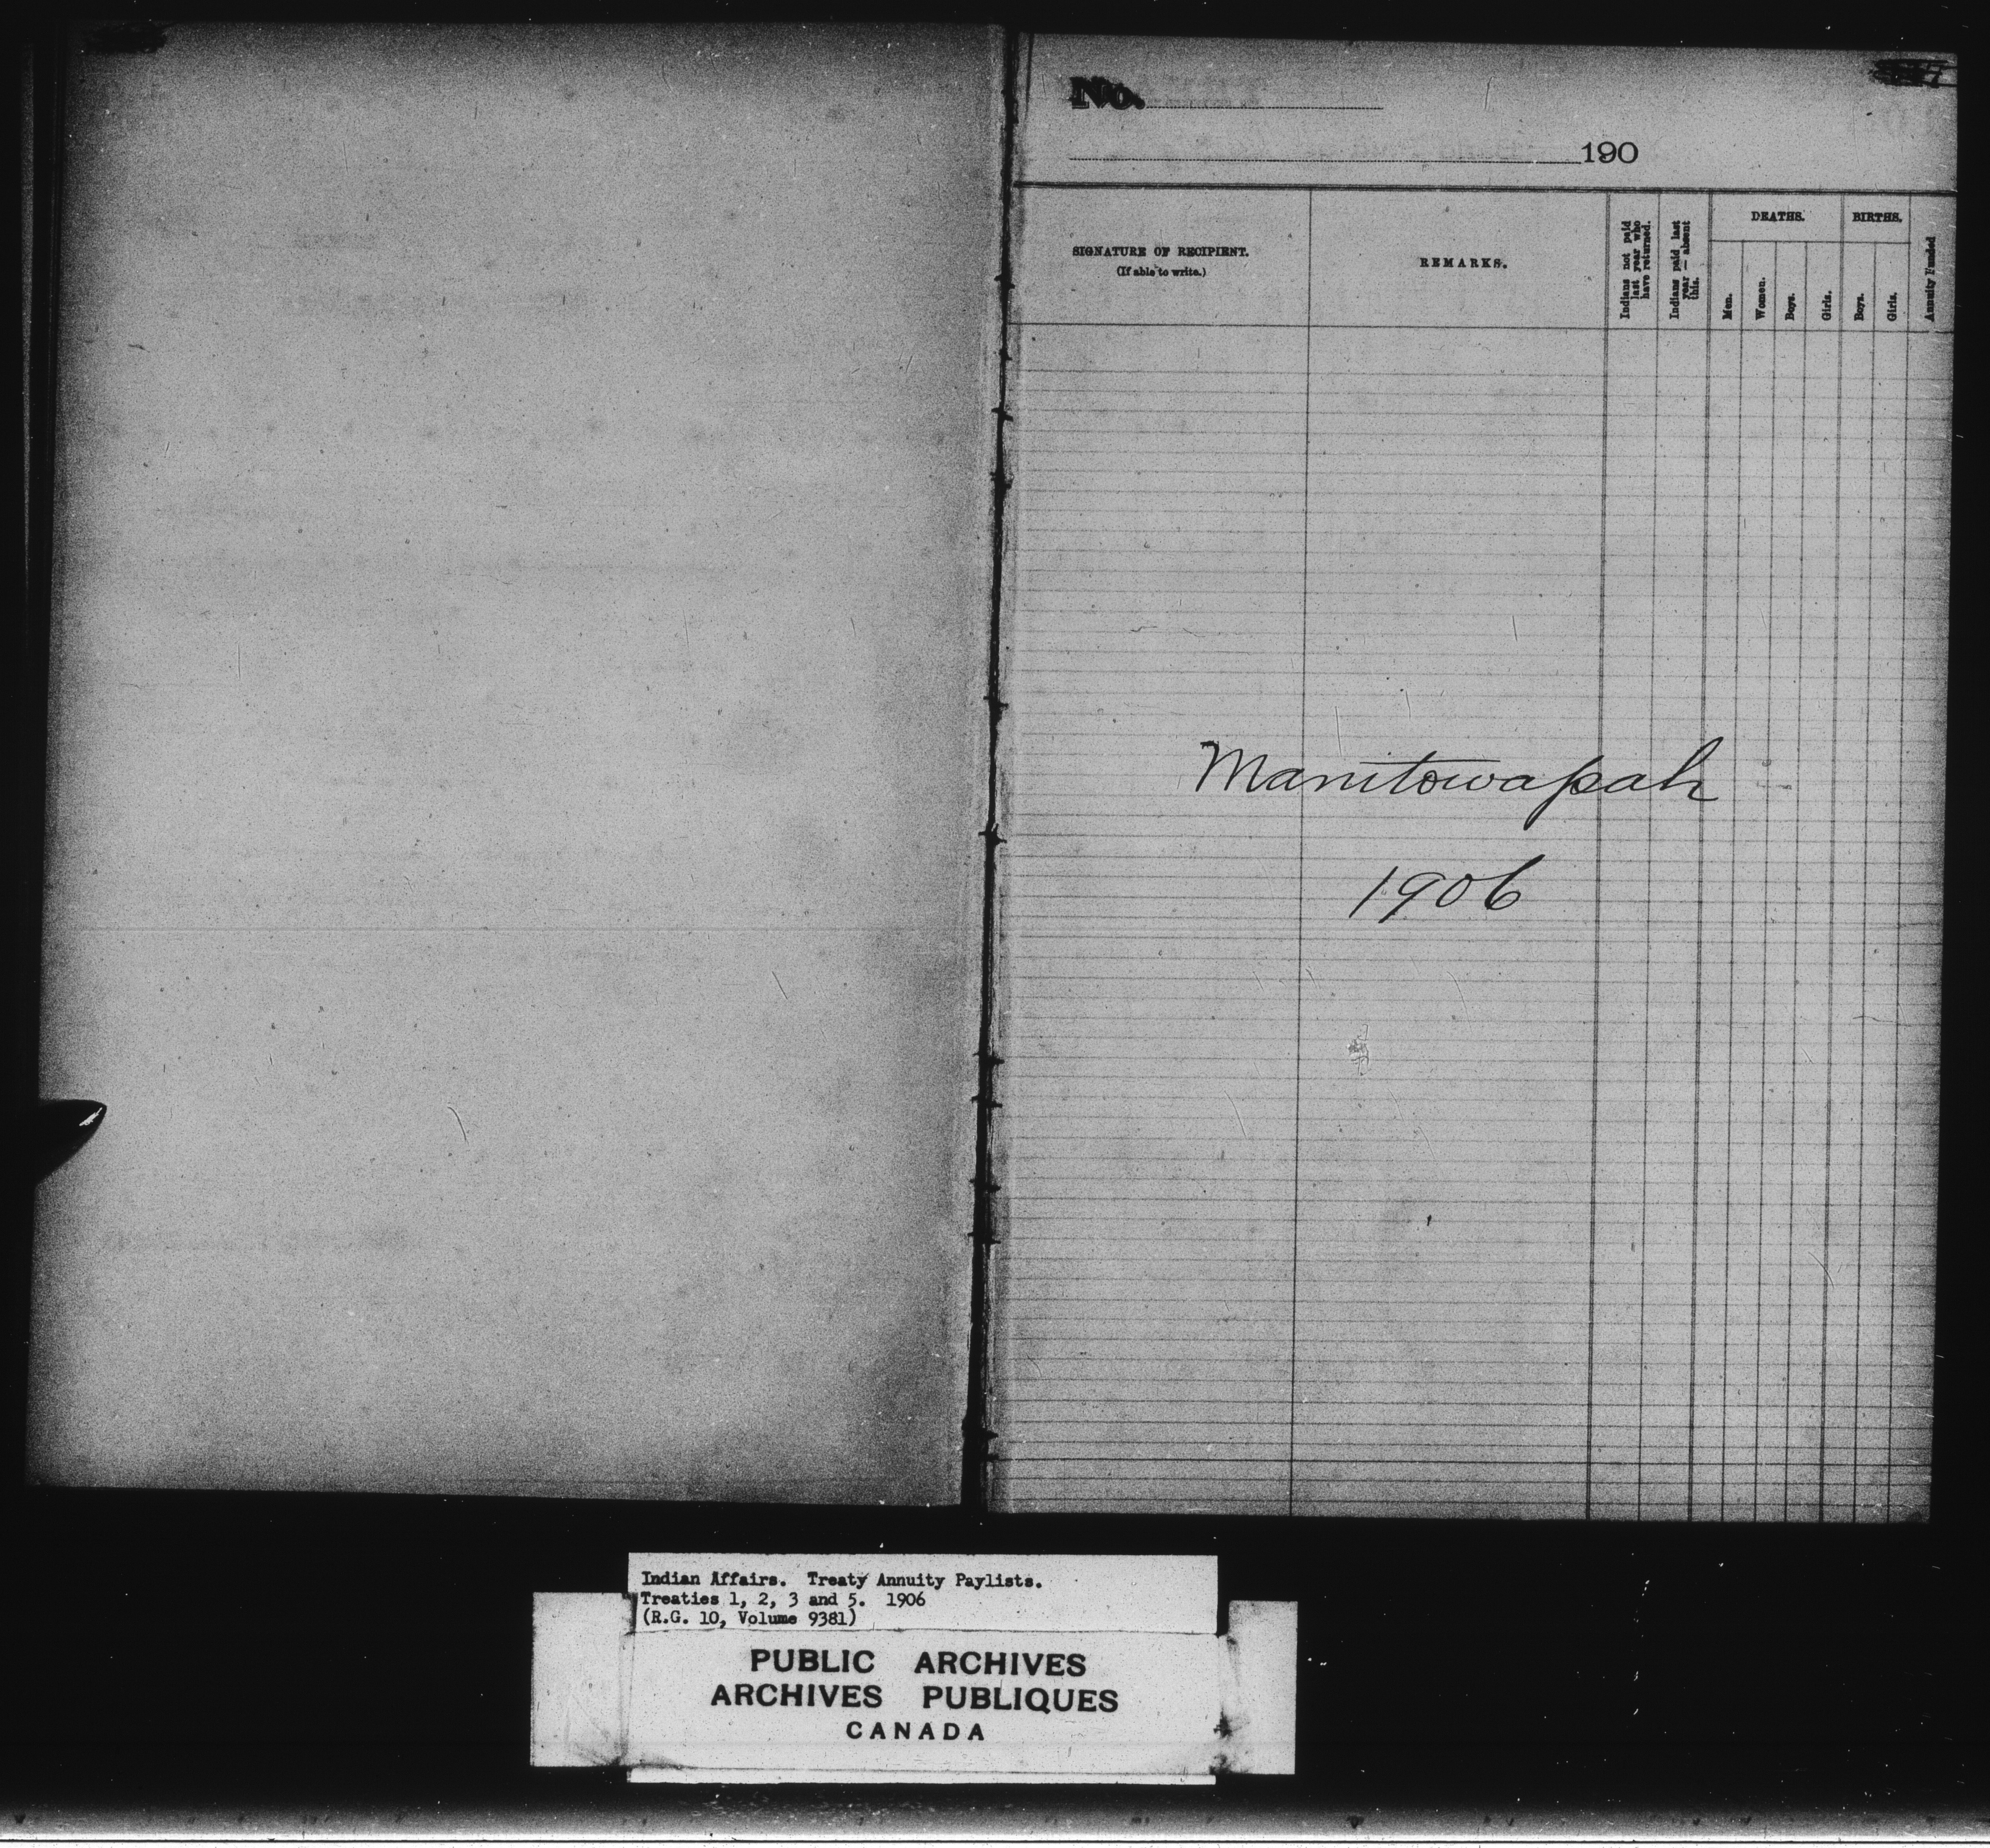 No.
190
SIGNATURE OF RECIPIENT.
(If able to write.)
REMARKS.
Indians not paid last year who have returned.
Indians paid last year — absent this.
DEATHS.
Men.
Women.
Boys.
Girls.
BIRTHS.
Boys.
Girls.
Annuity Funded
Manitowapah
1906
Indian Affairs. Treaty Annuity Paylists.
Treaties 1, 2, 3 and 5. 1906
(R.G. 10, Volume 9381)
PUBLIC ARCHIVES
ARCHIVES PUBLIQUES
CANADA